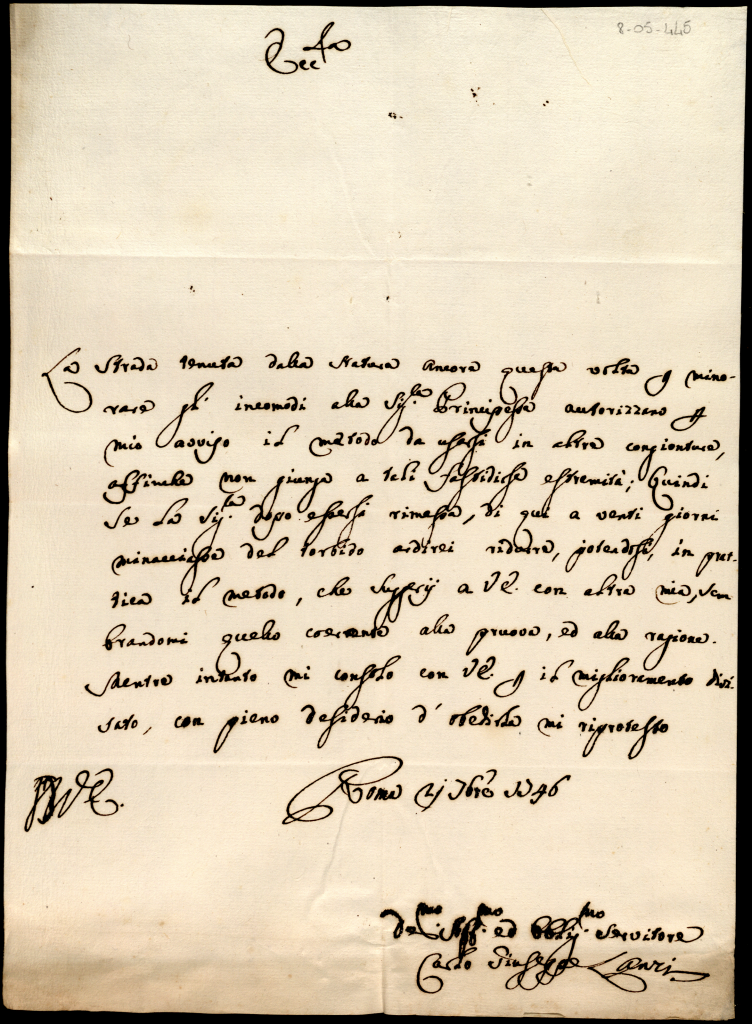 8-05-445
Ecc.za
La strada tenuta dalla Natura ancora questa volta p mino-
rare gl' incomodi alla Sig.ra Principessa autorizzano p
mio avviso il metodo da usarsi in altre congionture,
affinche non giunga a tali fastidiose estremità; Quindi
se la Sig.ra dopo essersi rimessa, di qui a venti giorni
minacciasse del torbido ardirei ridurre, potendosi, in prat-
tica il metodo, che suggerij a VE. con altra mia, sem
brandomi quello coerente alla pruova, ed alla ragione.
Mentre intanto mi consolo con VE. p il miglioramento divi-
sato, con pieno desiderio d' obedirla mi riprotesto
VE. Roma 21 7bre 1746
Dev.mo ed Obblig.mo Servitore
Carlo Giuseppe